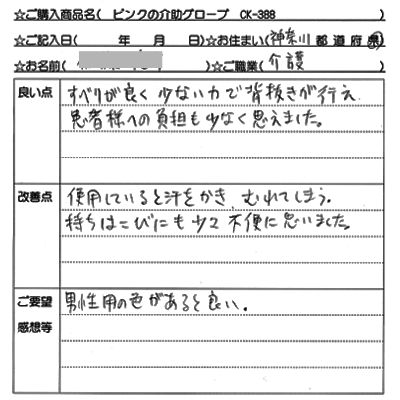 ☆ご購入商品名( ピンクの介助グローブ CK-388 )
☆ご記入日( 年 月 日)☆お住まい(神奈川 都道府県)
☆お名前( )☆ご職業( 介護 )
良い点
すべりが良く 少ない力で背抜きが行え
患者様への負担も少なく思えました。
改善点
使用していると汗をかき、むれてしまう。
持ちはこびにも少々不便に思いました。
ご要望
感想等
男性用の色があると良い。